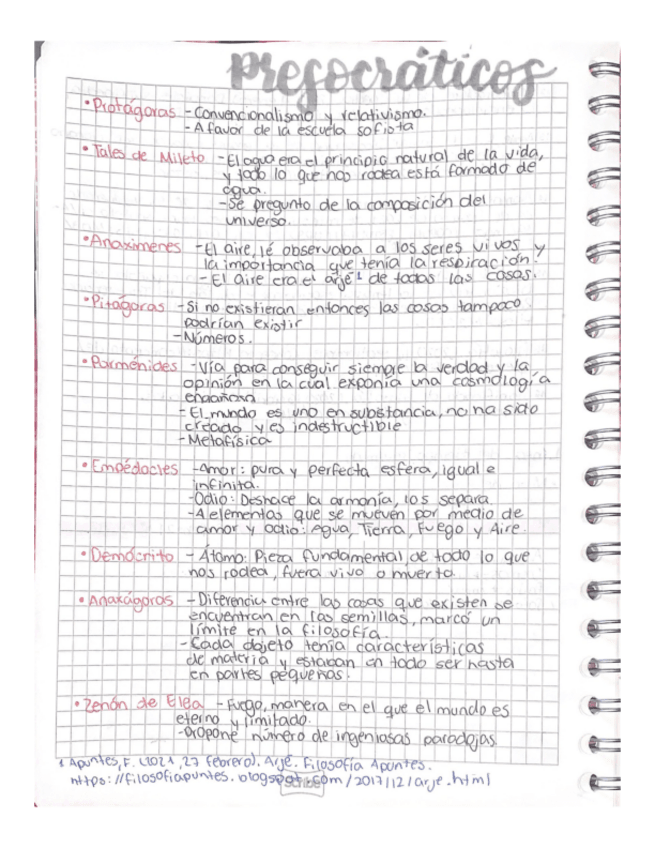 Presocráticos
• Protágoras - Convencionalismo y relativismo.
- A favor de la escuela sofista
• Tales de Mileto - El agua era el principio natural de la vida,
y todo lo que nos rodea está formado de
agua.
- Se pregunto de la composición del
universo.
• Anaximenes - El aire, lé observaba a los seres vivos y
la importancia que tenía la respiración.
- El aire era el arjé¹ de todas las cosas.
• Pitágoras - Si no existieran entonces las cosas tampoco
podrían existir
- Números.
• Parménides - Vía para conseguir siempre la verdad y la
opinión en la cual exponía una cosmología
- El mundo es uno en substancia, no ha sido
creado y es indestructible
- Metafísica
• Empédocles - Amor: pura y perfecta esfera, igual e
infinita.
- Odio: Deshace la armonía, los separa
- 4 elementos que se mueven por medio de
amor y odio: Agua, Tierra, Fuego y Aire.
• Demócrito - Átomo: Pieza fundamental de todo lo que
nos rodea, fuera vivo o muerto.
• Anaxágoras - Diferencia entre las cosas que existen se
encuentran en las semillas, marcó un
límite en la filosofía.
- Cada objeto tenía características
de materia y estaban en todo ser hasta
en partes pequeñas.
• Zenón de Elea - Fuego, manera en el que el mundo es
eterno y limitado.
- Propone número de ingeniosas paradojas
1 Apuntes, F. (2021, 27 febrero). Arjé. Filosofía Apuntes.
https://filosofiapuntes.blogspot.com/2017/12/arje.html
scribe